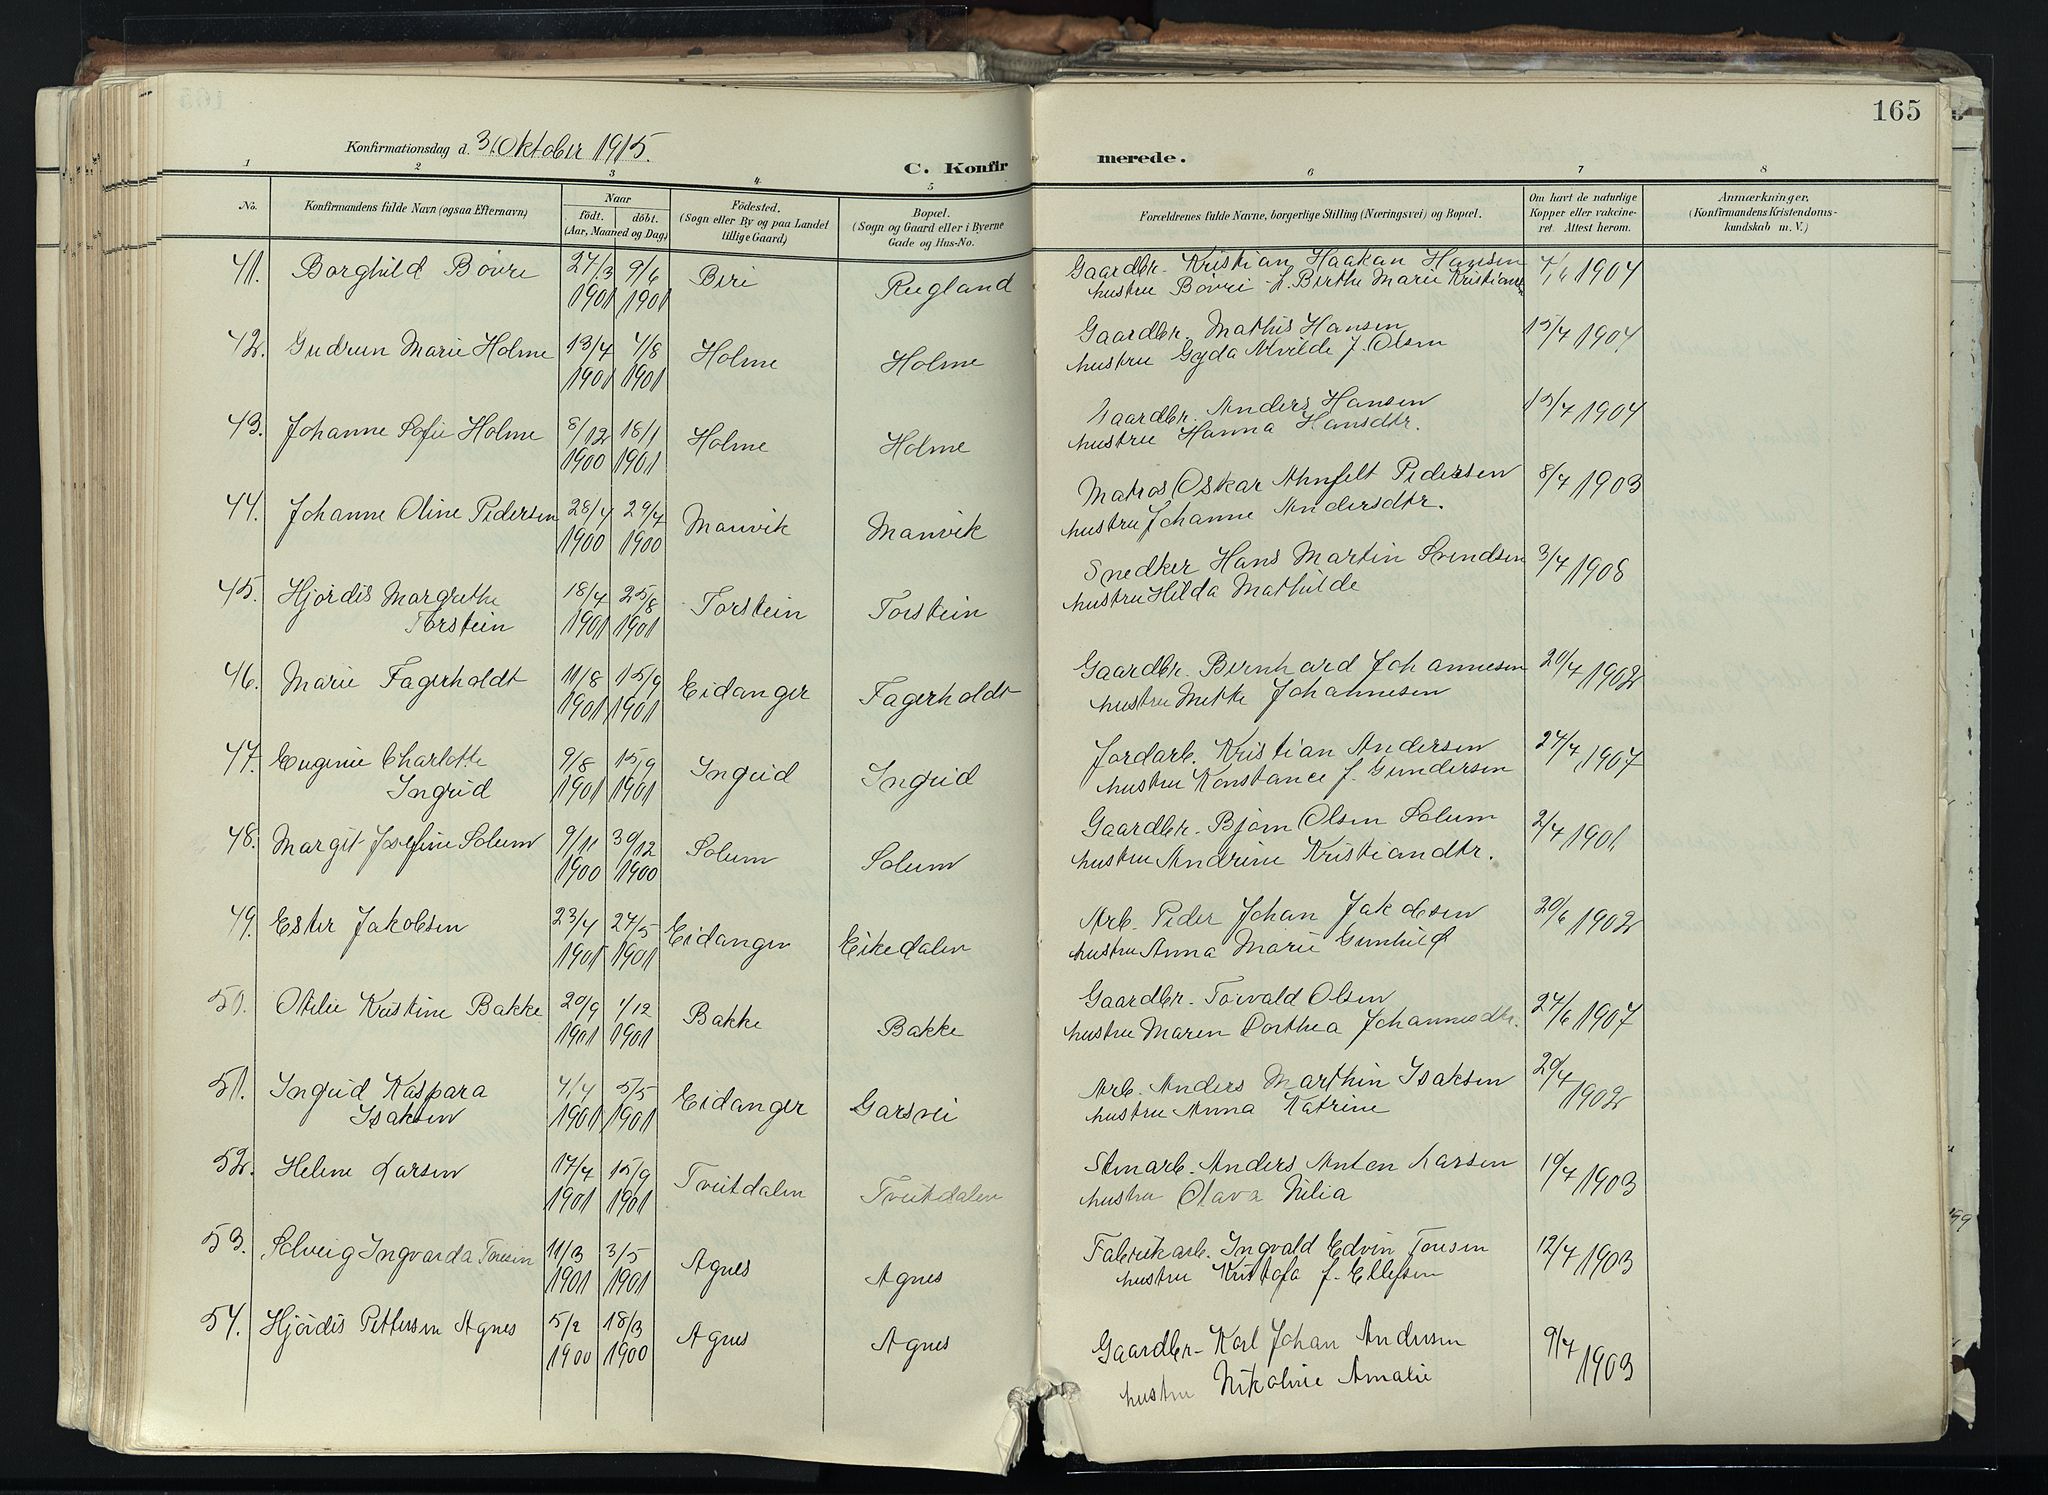 165
Konfirmationsdag d. 3. Oktober 1915.
C. Konfirmerede.
1 2 3 4 5 6 7 8
No.
Konfirmandens fulde Navn (ogsaa Efternavn)
Naar
födt. döbt.
(Aar, Maaned og Dag)
Födested.
(Sogn eller By og paa Landet
tillige Gaard)
Bopæl.
(Sogn og Gaard eller i Byerne
Gade og Hus-No.
Forældrenes fulde Navne, borgerlige Stilling (Næringsvei) og Bopæl.
Om havt de naturlige
Kopper eller vakcine-
ret. Attest herom.
Anmærkninger,
(Konfirmandens Kristendoms-
kundskab m. V.)
41. Borghild Bövre 27/3 9/6 Biri Rugland Gaardbr. Kristian Haakan Hansen 4/6 1904
1901 1901 hustru Bövri f. Birthe Marie Kristians
42. Gudrun Marie Holme 13/4 4/8 Holme Holme Gaardbr. Mathis Hansen 15/4 1904
1901 1901 hustru Gyda Alvilde f. Olsen
43. Johanne Sofie Holme 8/12 18/1 Holme Holme Gaardbr. Anders Hansen 15/4 1904
1900 1901 hustru Hanna Hansdtr.
44. Johanne Oline Pedersen 28/4 29/4 Manvik Manvik Matros Oskar Ahnfelt Pedersen 8/4 1903
1900 1900 hustru Johanne Andersdtr.
45. Hjördis Margrethe 18/4 25/8 Torstein Torstein Snedker Hans Martin Svendsen 3/4 1908
Torstein 1901 1901 hustru Hilda Mathilde
46. Marie Fagerholdt 11/8 15/9 Eidanger Fagerholdt Gaardbr. Bernhard Johannesen 20/4 1902
1901 1901 hustru Mette Johannesen
47. Eugenie Charlotte 9/8 15/9 Ingrid Ingrid Jordarb. Kristian Andersen 24/4 1907
Ingrid 1901 1901 hustru Konstance f. Gundersen
48. Margit Josefine Solum 9/11 30/12 Solum Solum Gaardbr. Bjørn Olsen Solum 2/4 1901
1900 1900 hustru Andrine Kristiandtr.
49. Ester Jakobsen 23/4 27/5 Eidanger Eikedalen Arb. Peder Johan Jakobsen 20/6 1902
1901 1901 hustru Anna Marie Gunhild
50. Otilie Kristine Bakke 20/9 1/12 Bakke Bakke Gaardbr. Torvald Olsen 27/6 1907
1901 1901 hustru Maren Dorthea Johannesdtr.
51. Ingrid Kaspara 4/4 5/5 Eidanger Garsvei Arb. Anders Marthin Isaksen 20/4 1902
Isaksen 1901 1901 hustru Anna Katrine
52. Helene Larsen 17/4 15/9 Tveitdalen Tveitdalen Stenarb. Anders Anton Larsen 19/4 1903
1901 1901 hustru Olava Julia
53. Solveig Ingvarda Tonesen 11/3 3/5 Agnes Agnes Fabrikarb. Ingvald Edvin Tonesen 12/4 1903
1901 1901 hustru Kristofa f. Ellefsen
54. Hjördis Pettersen Agnes 5/2 18/3 Agnes Agnes Gaardbr. Karl Johan Andersen 9/4 1903
1900 1900 hustru Nikoline Amalie